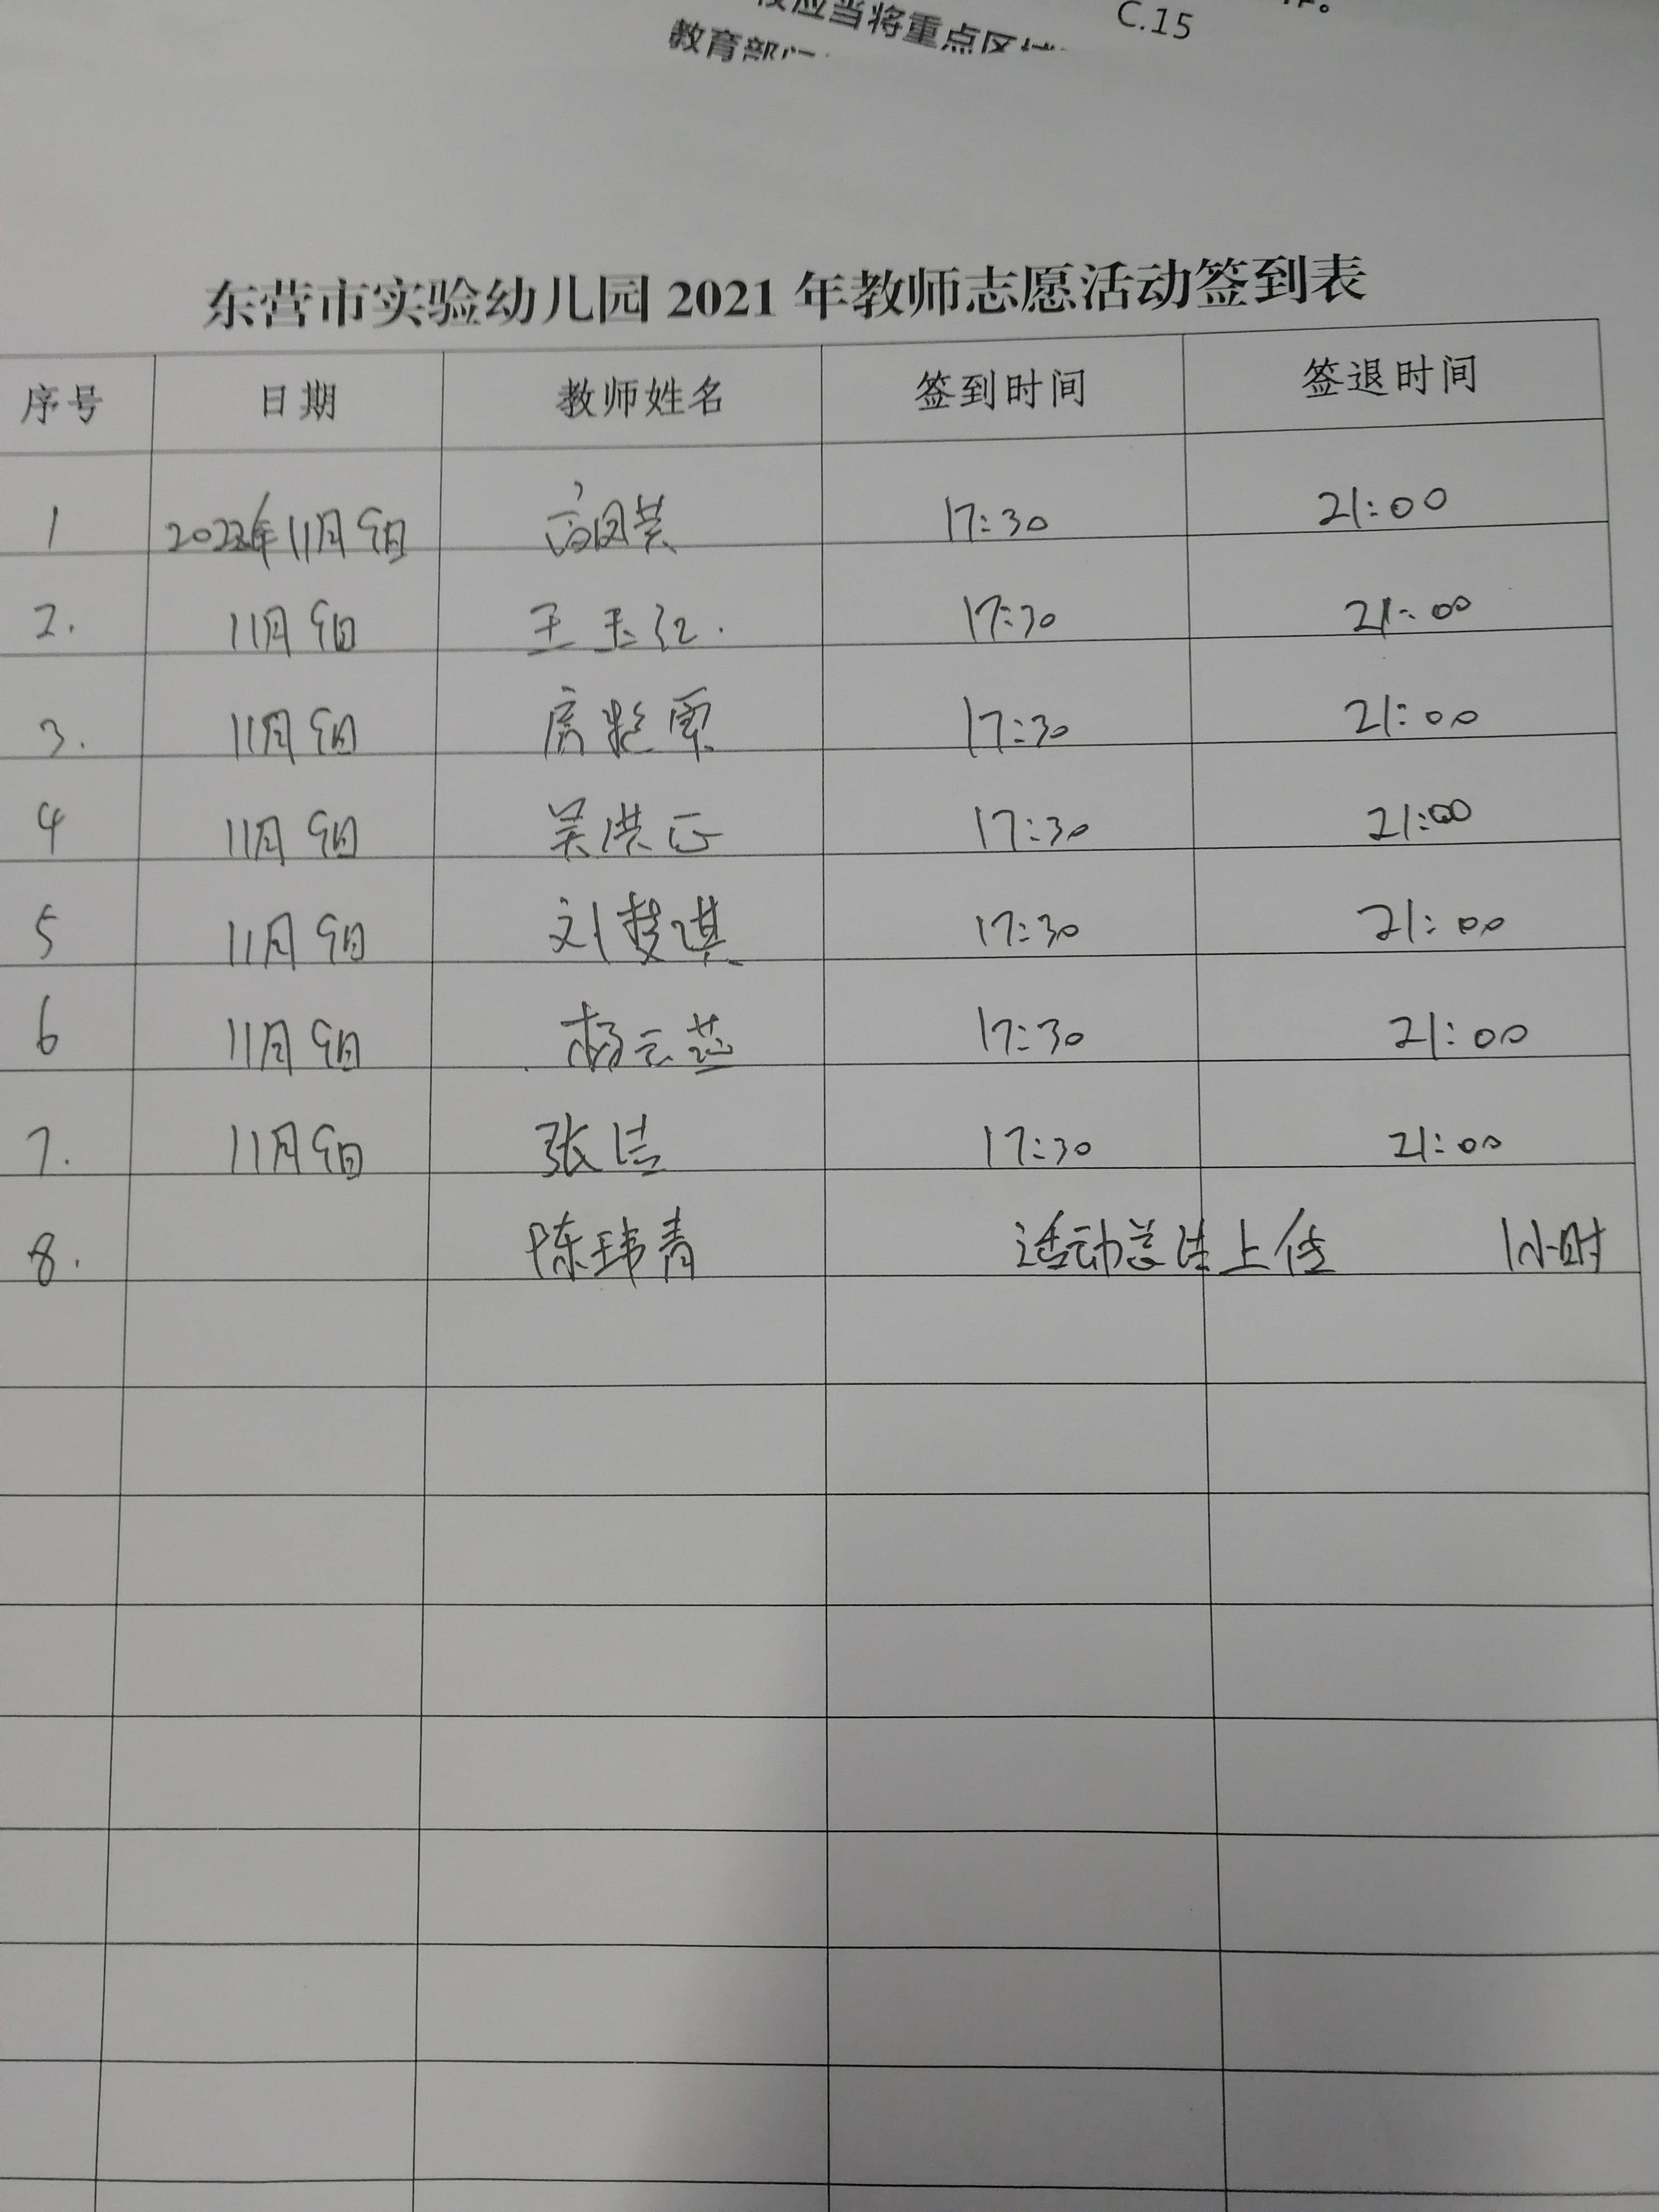 应当将重点区域
C.15
教育部门
东营市实验幼儿园 2021 年教师志愿活动签到表
序号 日期 教师姓名 签到时间 签退时间
1 年11月9日 高凤英 17:30 21:00
2. 11月9日 王玉红. 17:30 21:00
3. 11月9日 17:30 21:00
4 11月9日 吴洪正 17:30 21:00
5 11月9日 刘梦琪 17:30 21:00
6 11月9日 杨云蕊 17:30 21:00
7. 11月9日 张洁 17:30 21:00
8. 陈玮青 活动总结上传 1小时